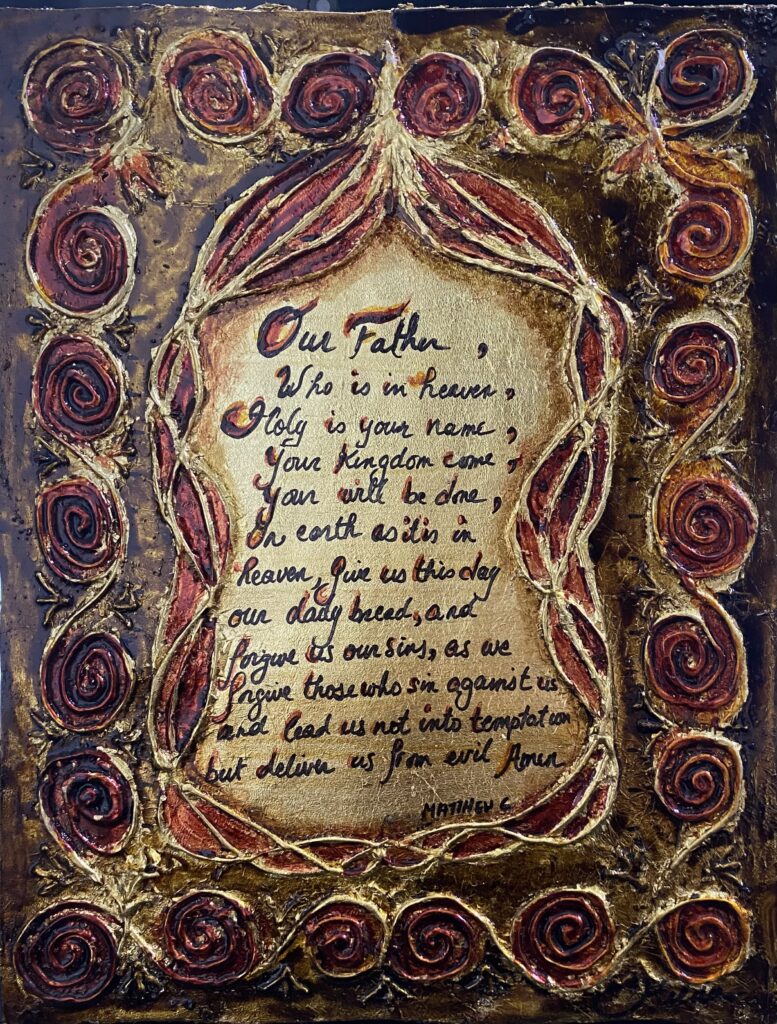 Our Father,
Who is in heaven,
Holy is your name,
Your Kingdom come,
Your will be done,
On earth as it is in
heaven, give us this day
our daily bread, and
forgive us our sins, as we
forgive those who sin against us
and lead us not into temptation
but deliver us from evil Amen
MATTHEW 6